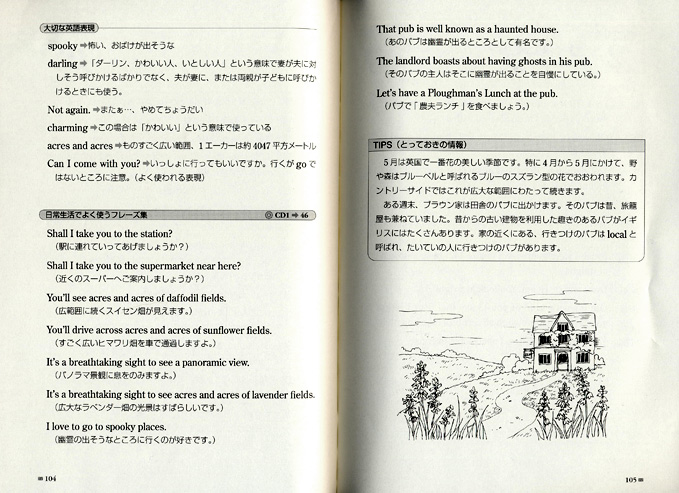 大切な英語表現
spooky ➡怖い、おばけが出そうな
darling ➡「ダーリン、かわいい人、いとしい人」という意味で妻が夫に対
しそう呼びかけるばかりでなく、夫が妻に、または両親が子どもに呼びか
けるときにも使う。
Not again. ➡またぁ…、やめてちょうだい
charming ➡この場合は「かわいい」という意味で使っている
acres and acres ➡ものすごく広い範囲、1エーカーは約 4047 平方メートル
Can I come with you? ➡いっしょに行ってもいいですか。行くが go で
はないところに注意。（よく使われる表現）
日常生活でよく使うフレーズ集 CD1 ➡ 46
Shall I take you to the station?
（駅に連れていってあげましょうか？）
Shall I take you to the supermarket near here?
（近くのスーパーへご案内しましょうか？）
You'll see acres and acres of daffodil fields.
（広範囲に続くスイセン畑が見えます。）
You'll drive across acres and acres of sunflower fields.
（すごく広いヒマワリ畑を車で通過しますよ。）
It's a breathtaking sight to see a panoramic view.
（パノラマ景観に息をのみますよ。）
It's a breathtaking sight to see acres and acres of lavender fields.
（広大なラベンダー畑の光景はすばらしいです。）
I love to go to spooky places.
（幽霊の出そうなところに行くのが好きです。）
104
That pub is well known as a haunted house.
（あのパブは幽霊が出るところとして有名です。）
The landlord boasts about having ghosts in his pub.
（そのパブの主人はそこに幽霊が出ることを自慢にしている。）
Let's have a Ploughman's Lunch at the pub.
（パブで「農夫ランチ」を食べましょう。）
TIPS（とっておきの情報）
5月は英国で一番花の美しい季節です。特に4月から5月にかけて、野
や森はブルーベルと呼ばれるブルーのスズラン型の花でおおわれます。カ
ントリーサイドではこれが広大な範囲にわたって続きます。
ある週末、ブラウン家は田舎のパブに出かけます。そのパブは昔、旅籠
屋も兼ねていました。昔からの古い建物を利用した趣きのあるパブがイギ
リスにはたくさんあります。家の近くにある、行きつけのパブは local と
呼ばれ、たいていの人に行きつけのパブがあります。
105